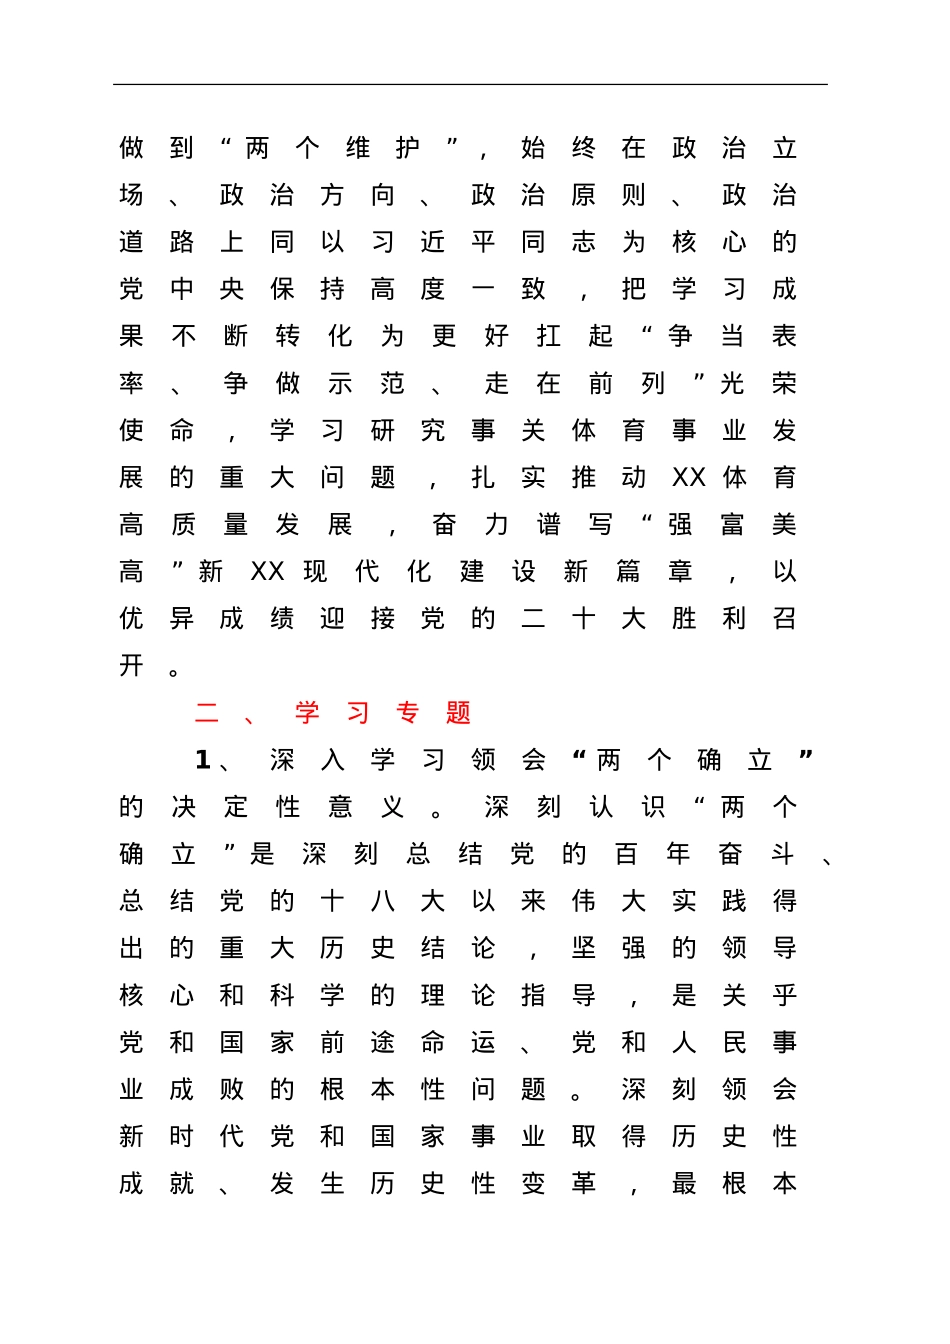 做到“两个维护”,始终在政治立
场、政治方向、政治原则、政治
道路上同以习近平同志为核心的
党中央保持高度一致,把学习成
果不断转化为更好扛起“争当表
率、争做示范、走在前列”光荣
使命,学习研究事关体育事业发
展的重大问题,扎实推动XX体育
高质量发展,奋力谱写“强富美
高”新XX现代化建设新篇章,以
优异成绩迎接党的二十大胜利召
开。
二、学习专题
1、深入学习领会“两个确立”
的决定性意义。深刻认识“两个
确立”是深刻总结党的百年奋斗、
总结党的十八大以来伟大实践得
出的重大历史结论,坚强的领导
核心和科学的理论指导,是关乎
党和国家前途命运、党和人民事
业成败的根本性问题。深刻领会
新时代党和国家事业取得历史性
成就、发生历史性变革,最根本